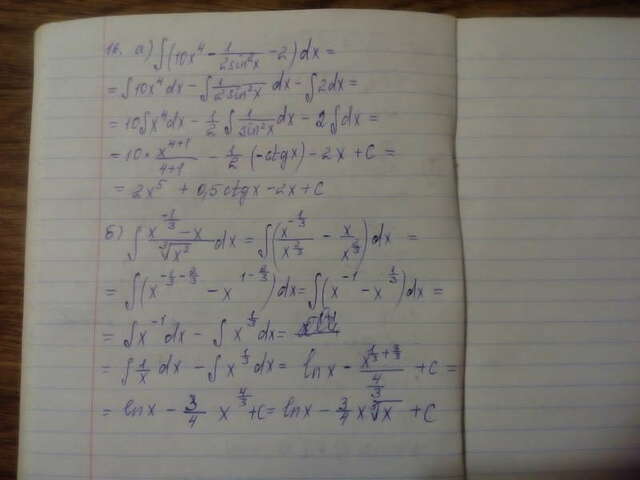 16. а) ∫(10x⁴ - 1/(2sin²x) - 2)dx =
= ∫10x⁴dx - ∫1/(2sin²x) dx - ∫2dx =
= 10∫x⁴dx - 1/2 ∫ 1/(sin²x) dx - 2∫dx =
= 10 · x^(4+1)/(4+1) - 1/2 (-ctgx) - 2x + C =
= 2x⁵ + 0,5ctgx - 2x + C
б) ∫ (x^(-1/3) - x)/∛(x²) dx = ∫(x^(-1/3)/x^(2/3) - x/x^(2/3))dx =
= ∫(x^(-1/3-2/3) - x^(1-2/3))dx = ∫(x^(-1) - x^(1/3))dx =
= ∫x^(-1)dx - ∫x^(1/3)dx =
= ∫1/x dx - ∫x^(1/3)dx = lnx - x^(1/3+3/3)/(4/3) + C =
= lnx - 3/4 x^(4/3) + C = lnx - 3/4 x∛x + C